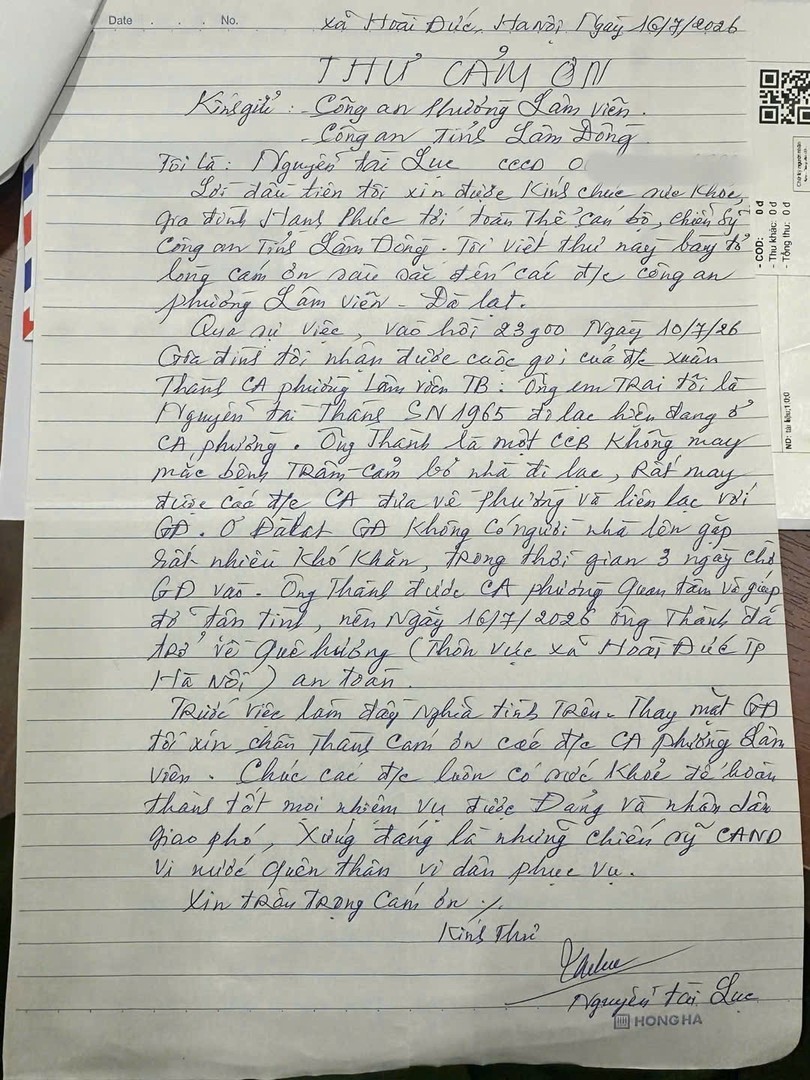 Date . . . No.
xã Hoài Đức, Hà Nội Ngày 16/7/2026
THƯ CẢM ƠN
Kính gửi : - Công an Phường Lâm Viên.
- Công an Tỉnh Lâm Đồng.
Tôi là : Nguyễn Tài Lục CCCD 0
Lời đầu tiên tôi xin được Kính chúc sức khỏe,
gia đình Hạnh Phúc tới toàn Thể Cán bộ, chiến sỹ
Công an Tỉnh Lâm Đồng. Tôi viết thư này bày tỏ
lòng cảm ơn sâu sắc đến các đ/c công an
phường Lâm Viên - Đà lạt.
Qua sự việc, vào hồi 23g00 Ngày 10/7/26
Gia đình tôi nhận được cuộc gọi của đ/c Xuân
Thành CA phường Lâm viên TB : Ông em TRai tôi là
Nguyễn tài Thành SN 1965 đi lạc hiện đang ở
CA phường. Ông Thành là một CCB Không may
mắc bệnh TRầm-Cảm bỏ nhà đi lạc, Rất may
được các đ/c CA đưa về Phường và liên lạc với
GĐ. Ở Đàlạt GĐ Không có người nhà lên gặp
rất nhiều Khó Khăn, trong thời gian 3 ngày chờ
GĐ vào. Ông Thành được CA phường Quan tâm và giúp
đỡ tận tình, nên Ngày 16/7/2026 ông Thành đã
trở về Quê hương (Thôn vực xã Hoài Đức TP
Hà Nội) an toàn.
Trước việc làm đầy Nghĩa tình TRên. Thay mặt GĐ
tôi xin chân Thành Cảm ơn các đ/c CA phường Lâm
Viên. Chúc các đ/c luôn có sức Khoẻ để hoàn
thành tốt mọi nhiệm vụ được Đảng và nhân dân
giao phó, Xứng đáng là những chiến sỹ CAND
Vì nước Quên thân vì dân phục vụ.
Xin TRân TRọng Cảm ơn ./.
Kính Thư
Nguyễn tài Lục
HONG HA
- COD: 0 đ
- Thu khác: 0 đ
- Tổng thu: 0 đ